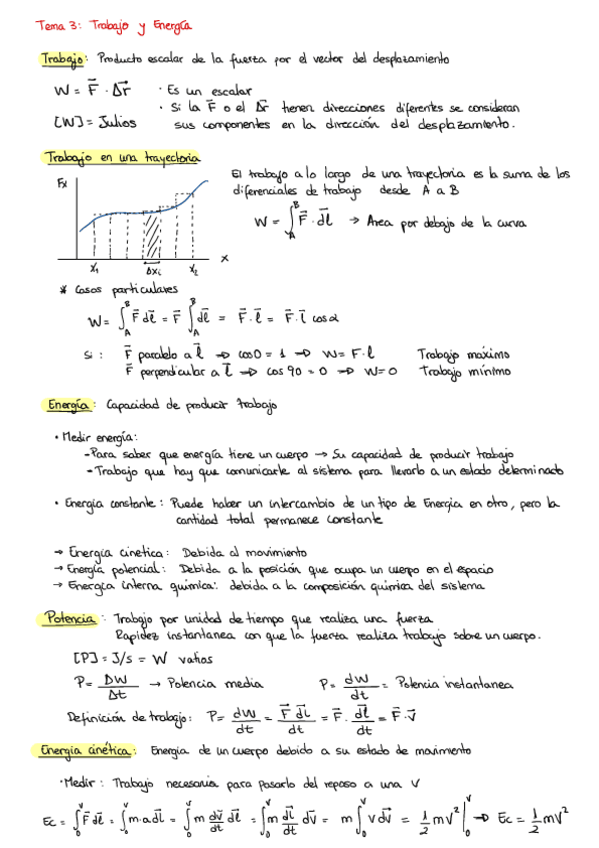 Tema 3: Trabajo y Energía
Trabajo: Producto escalar de la fuerza por el vector del desplazamiento
W = F⃗ · Δr⃗ · Es un escalar
· Si la F⃗ o el Δr⃗ tienen direcciones diferentes se consideran
[W] = Julios sus componentes en la dirección del desplazamiento.
Trabajo en una trayectoria
El trabajo a lo largo de una trayectoria es la suma de los
diferenciales de trabajo desde A a B
W = ∫_A^B F⃗ · dl⃗ → Area por debajo de la curva
Fx
x
x₁ Δxᵢ x₂
* Casos particulares
W = ∫_A^B F⃗ dl⃗ = F⃗ ∫_A^B dl⃗ = F⃗ · l⃗ = F⃗ · l⃗ cos α
Si : F⃗ paralelo a l⃗ → cos 0 = 1 → W = F · l Trabajo maximo
F⃗ perpendicular a l⃗ → cos 90 = 0 → W = 0 Trabajo mínimo
Energía: Capacidad de producir trabajo
· Medir energía:
- Para saber que energía tiene un cuerpo → Su capacidad de producir trabajo
- Trabajo que hay que comunicarle al sistema para llevarlo a un estado determinado
· Energía constante: Puede haber un intercambio de un tipo de Energía en otro, pero la
cantidad total permanece constante
→ Energía cinetica: Debida al movimiento
→ Energía potencial: Debida a la posición que ocupa un cuerpo en el espacio
→ Energía interna química: debida a la composición química del sistema
Potencia: Trabajo por unidad de tiempo que realiza una fuerza
Rapidez instantanea con que la fuerza realiza trabajo sobre un cuerpo.
[P] = J/s = W vatios
P = ΔW/Δt → Potencia media P = dW/dt = Potencia instantanea
Definición de trabajo: P = dW/dt = F⃗ dl⃗/dt = F⃗ · dl⃗/dt = F⃗ · v⃗
Energía cinética: Energia de un cuerpo debido a su estado de movimiento
· Medir: Trabajo necesario para pasarlo del reposo a una V
Ec = ∫₀^V F⃗ dl⃗ = ∫₀^V m·a dl⃗ = ∫₀^V m dv⃗/dt dl⃗ = ∫₀^V m dl⃗/dt dv⃗ = m ∫₀^V v dv⃗ = 1/2 mv² |₀^V → Ec = 1/2 mv²